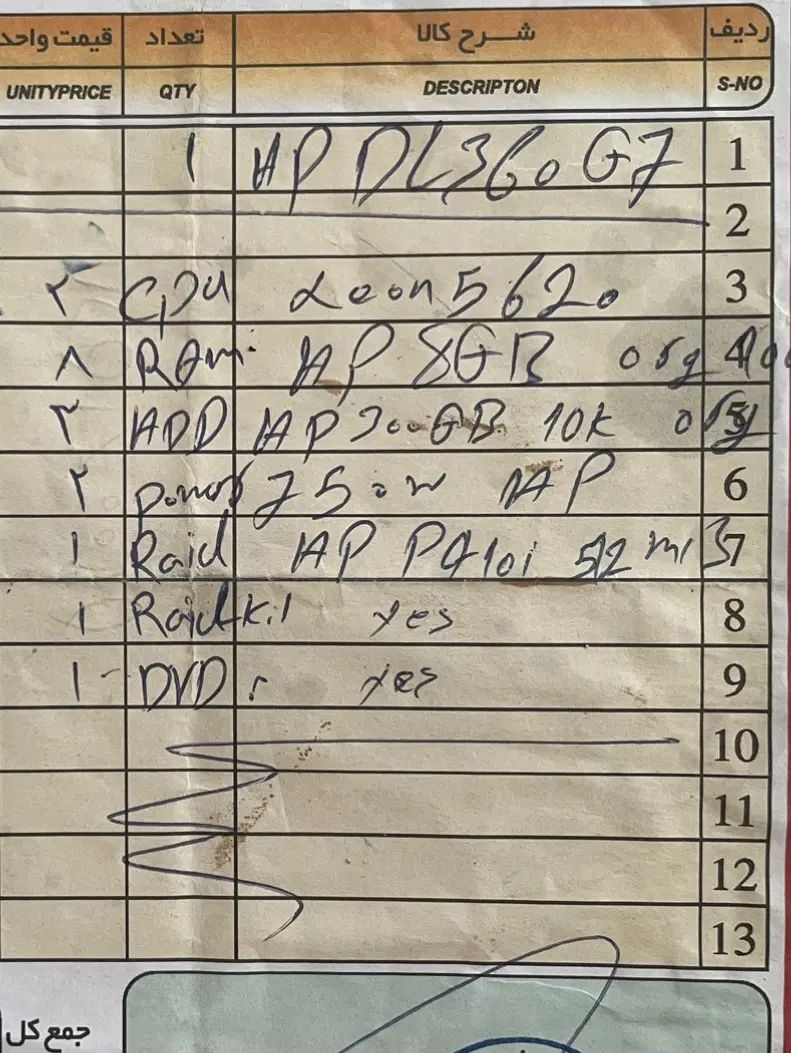 ردیف شرح کالا تعداد قیمت واحد
S-NO DESCRIPTON QTY UNITYPRICE
1 HP DL360 G7 ۱
2
3 Xeon 5620 CPU ۲
4 HP 8GB org RAM ۸
5 HP 300GB 10K org HDD ۳
6 750W HP Power ۲
7 HP P410i 512 mB Raid ۱
8 Raid kit yes ۱
9 DVD yes ۱
10
11
12
13
جمع کل